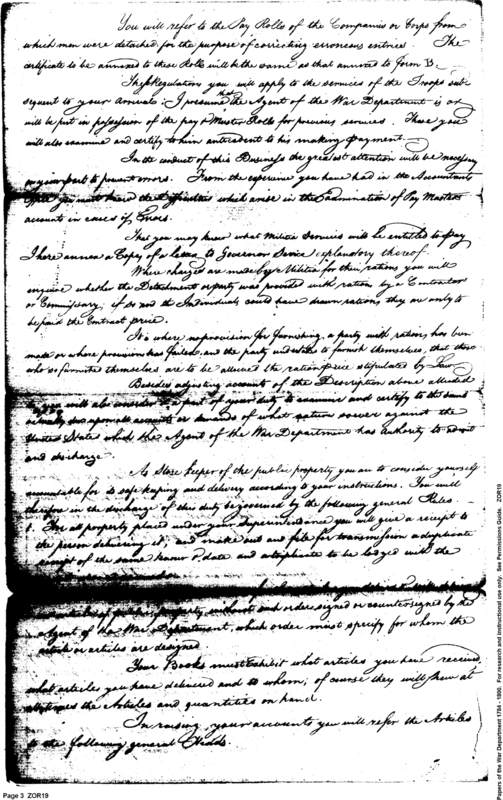 You will refer to the Pay Rolls of the Companies or Corps from
which men were detached for the purpose of correcting erroneous entries. The
certificate to be annexed to these Rolls will be the same as that annexed to form B.
These Regulations you will apply to the services of the Troops sub-
sequent to your Arrival: I presume that the Agent of the War Department is or
will be put in possession of the pay & Muster Rolls for previous services. These you
will also examine and certify to him antecedent to his making payment.
In the conduct of this Business the greatest attention will be necessary
on your part to prevent errors. From the experience you have had in the Accountants
Office you must know the difficulties which arise in the Examination of Pay Masters
accounts in cases of Errors.
That you may know what Militia Services will be entitled to Pay
I here annex a Copy of a Letter to Governor Sevier explanatory thereof.
Where charges are made by Militia for their rations you will
enquire whether the Detachment or party was provided with rations by a Contractor
or Commissary; if so and the Individuals could have drawn rations they are only to
be paid the Contract price.
where no provision for furnishing a party with rations has been
made or where provision has failed, and the party undertakes to furnish themselves, that those
who so furnished themselves are to be allowed the ration price stipulated by Law
Besides adjusting accounts of the Description above alluded
to you will also consider it a part of your duty to examine and certify to the sums
actually due upon all accounts or demands of what nature soever against the
United States which the Agent of the War Department has authority to admit
and discharge.
As Store keeper of the public property you are to consider yourself
accountable for its safe keeping and delivery according to your instructions. You will
therefore in the discharge of this duty be governed by the following general Rules.
1. For all property placed under your Superintendance you will give a receipt to
the person delivering it, and make out and file for transmission a duplicate
receipt of the same tenor & date and a triplicate to be lodged with the
property, without such order signed or countersigned by the
Agent of the War Department, which order must specify for whom the
article or articles are designed
Your Books must exhibit what articles you have received,
what articles you have delivered and to whom; of course they will shew at
all times the Articles and quantities on hand.
In raising your accounts you will refer the Articles
to the following general Heads.
Page 3 ZOR19
Papers of the War Department 1784 - 1800. For research and instructional use only. See Permissions Guide. ZOR19